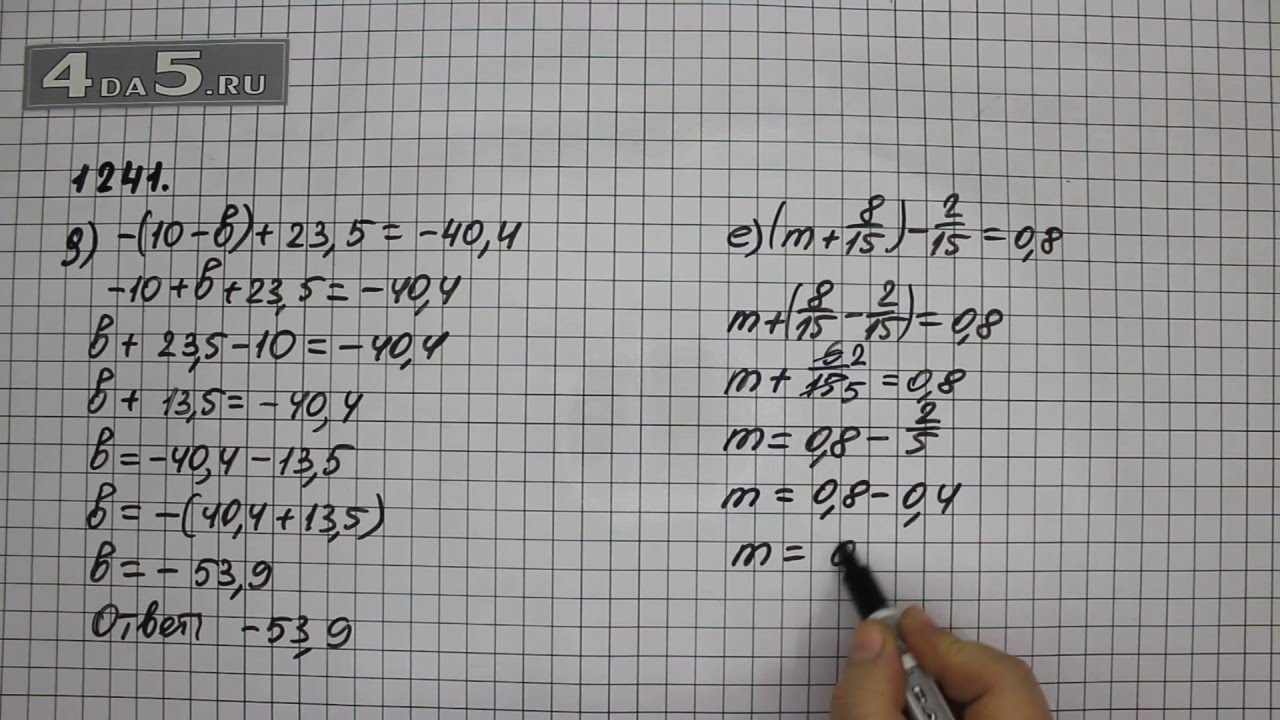 4DA5.RU
1241.
д) -(10-в)+23,5=-40,4
-10+в+23,5=-40,4
в+ 23,5-10=-40,4
в+ 13,5=-40,4
в=-40,4-13,5
в=-(40,4+13,5)
в=-53,9
Ответ -53,9
е)(m+8/15)-2/15=0,8
m+(8/15-2/15)=0,8
m+ 6 2/15 5=0,8
m=0,8-2/5
m=0,8-0,4
m=